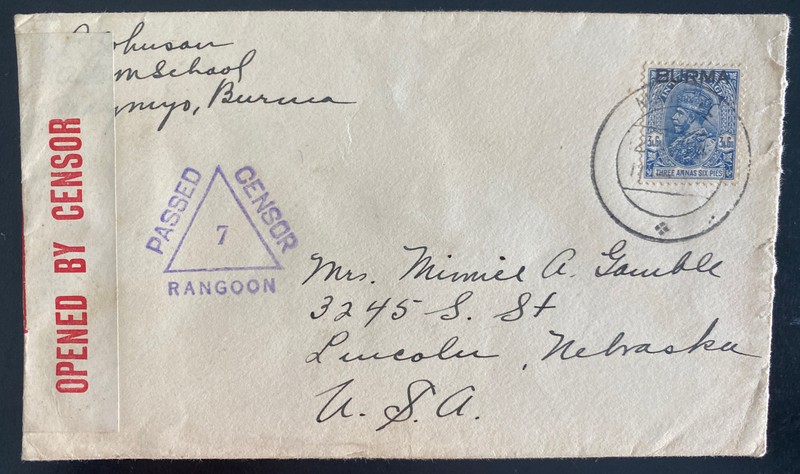 Johnson
School
Burma
OPENED BY CENSOR
PASSED CENSOR
7
RANGOON
BURMA
THREE ANNAS SIX PIES
Mrs. Minnie A. Gamble
3245 S. St
Lincoln, Nebraska
U. S. A.